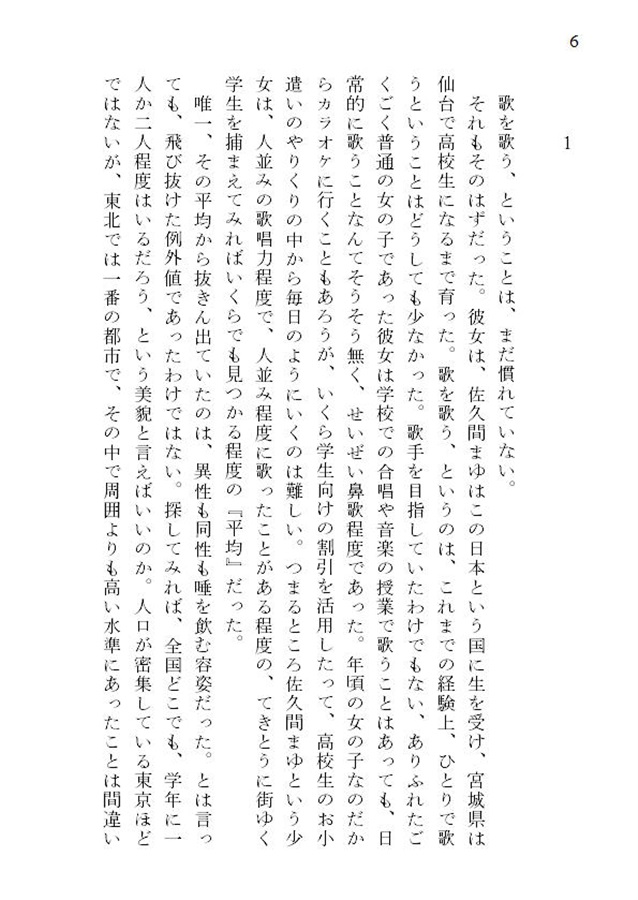 6
1
　歌を歌う、ということは、まだ慣れていない。
　それもそのはずだった。彼女は、佐久間まゆはこの日本という国に生を受け、宮城県は
仙台で高校生になるまで育った。歌を歌う、というのは、これまでの経験上、ひとりで歌
うということはどうしても少なかった。歌手を目指していたわけでもない、ありふれたご
くごく普通の女の子であった彼女は学校での合唱や音楽の授業で歌うことはあっても、日
常的に歌うことなんてそうそう無く、せいぜい鼻歌程度であった。年頃の女の子なのだか
らカラオケに行くこともあろうが、いくら学生向けの割引を活用したって、高校生のお小
遣いのやりくりの中から毎日のようにいくのは難しい。つまるところ佐久間まゆという少
女は、人並みの歌唱力程度で、人並み程度に歌ったことがある程度の、てきとうに街ゆく
学生を捕まえてみればいくらでも見つかる程度の『平均』だった。
　唯一、その平均から抜きん出ていたのは、異性も同性も唾を飲む容姿だった。とは言っ
ても、飛び抜けた例外値であったわけではない。探してみれば、全国どこでも、学年に一
人か二人程度はいるだろう、という美貌と言えばいいのか。人口が密集している東京ほど
ではないが、東北では一番の都市で、その中で周囲よりも高い水準にあったことは間違い